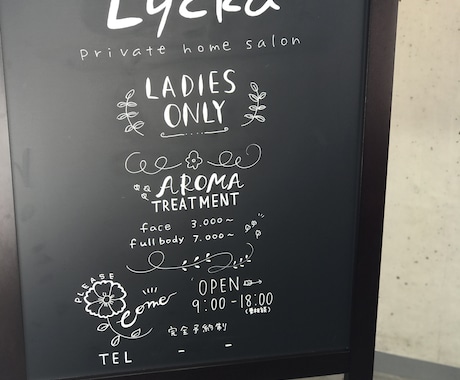 Lycka
private home salon
LADIES
ONLY
AROMA
TREATMENT
face 3.000~
full body 7.000~
PLEASE
Come
OPEN
9:00-18:00
完全予約制
TEL - -